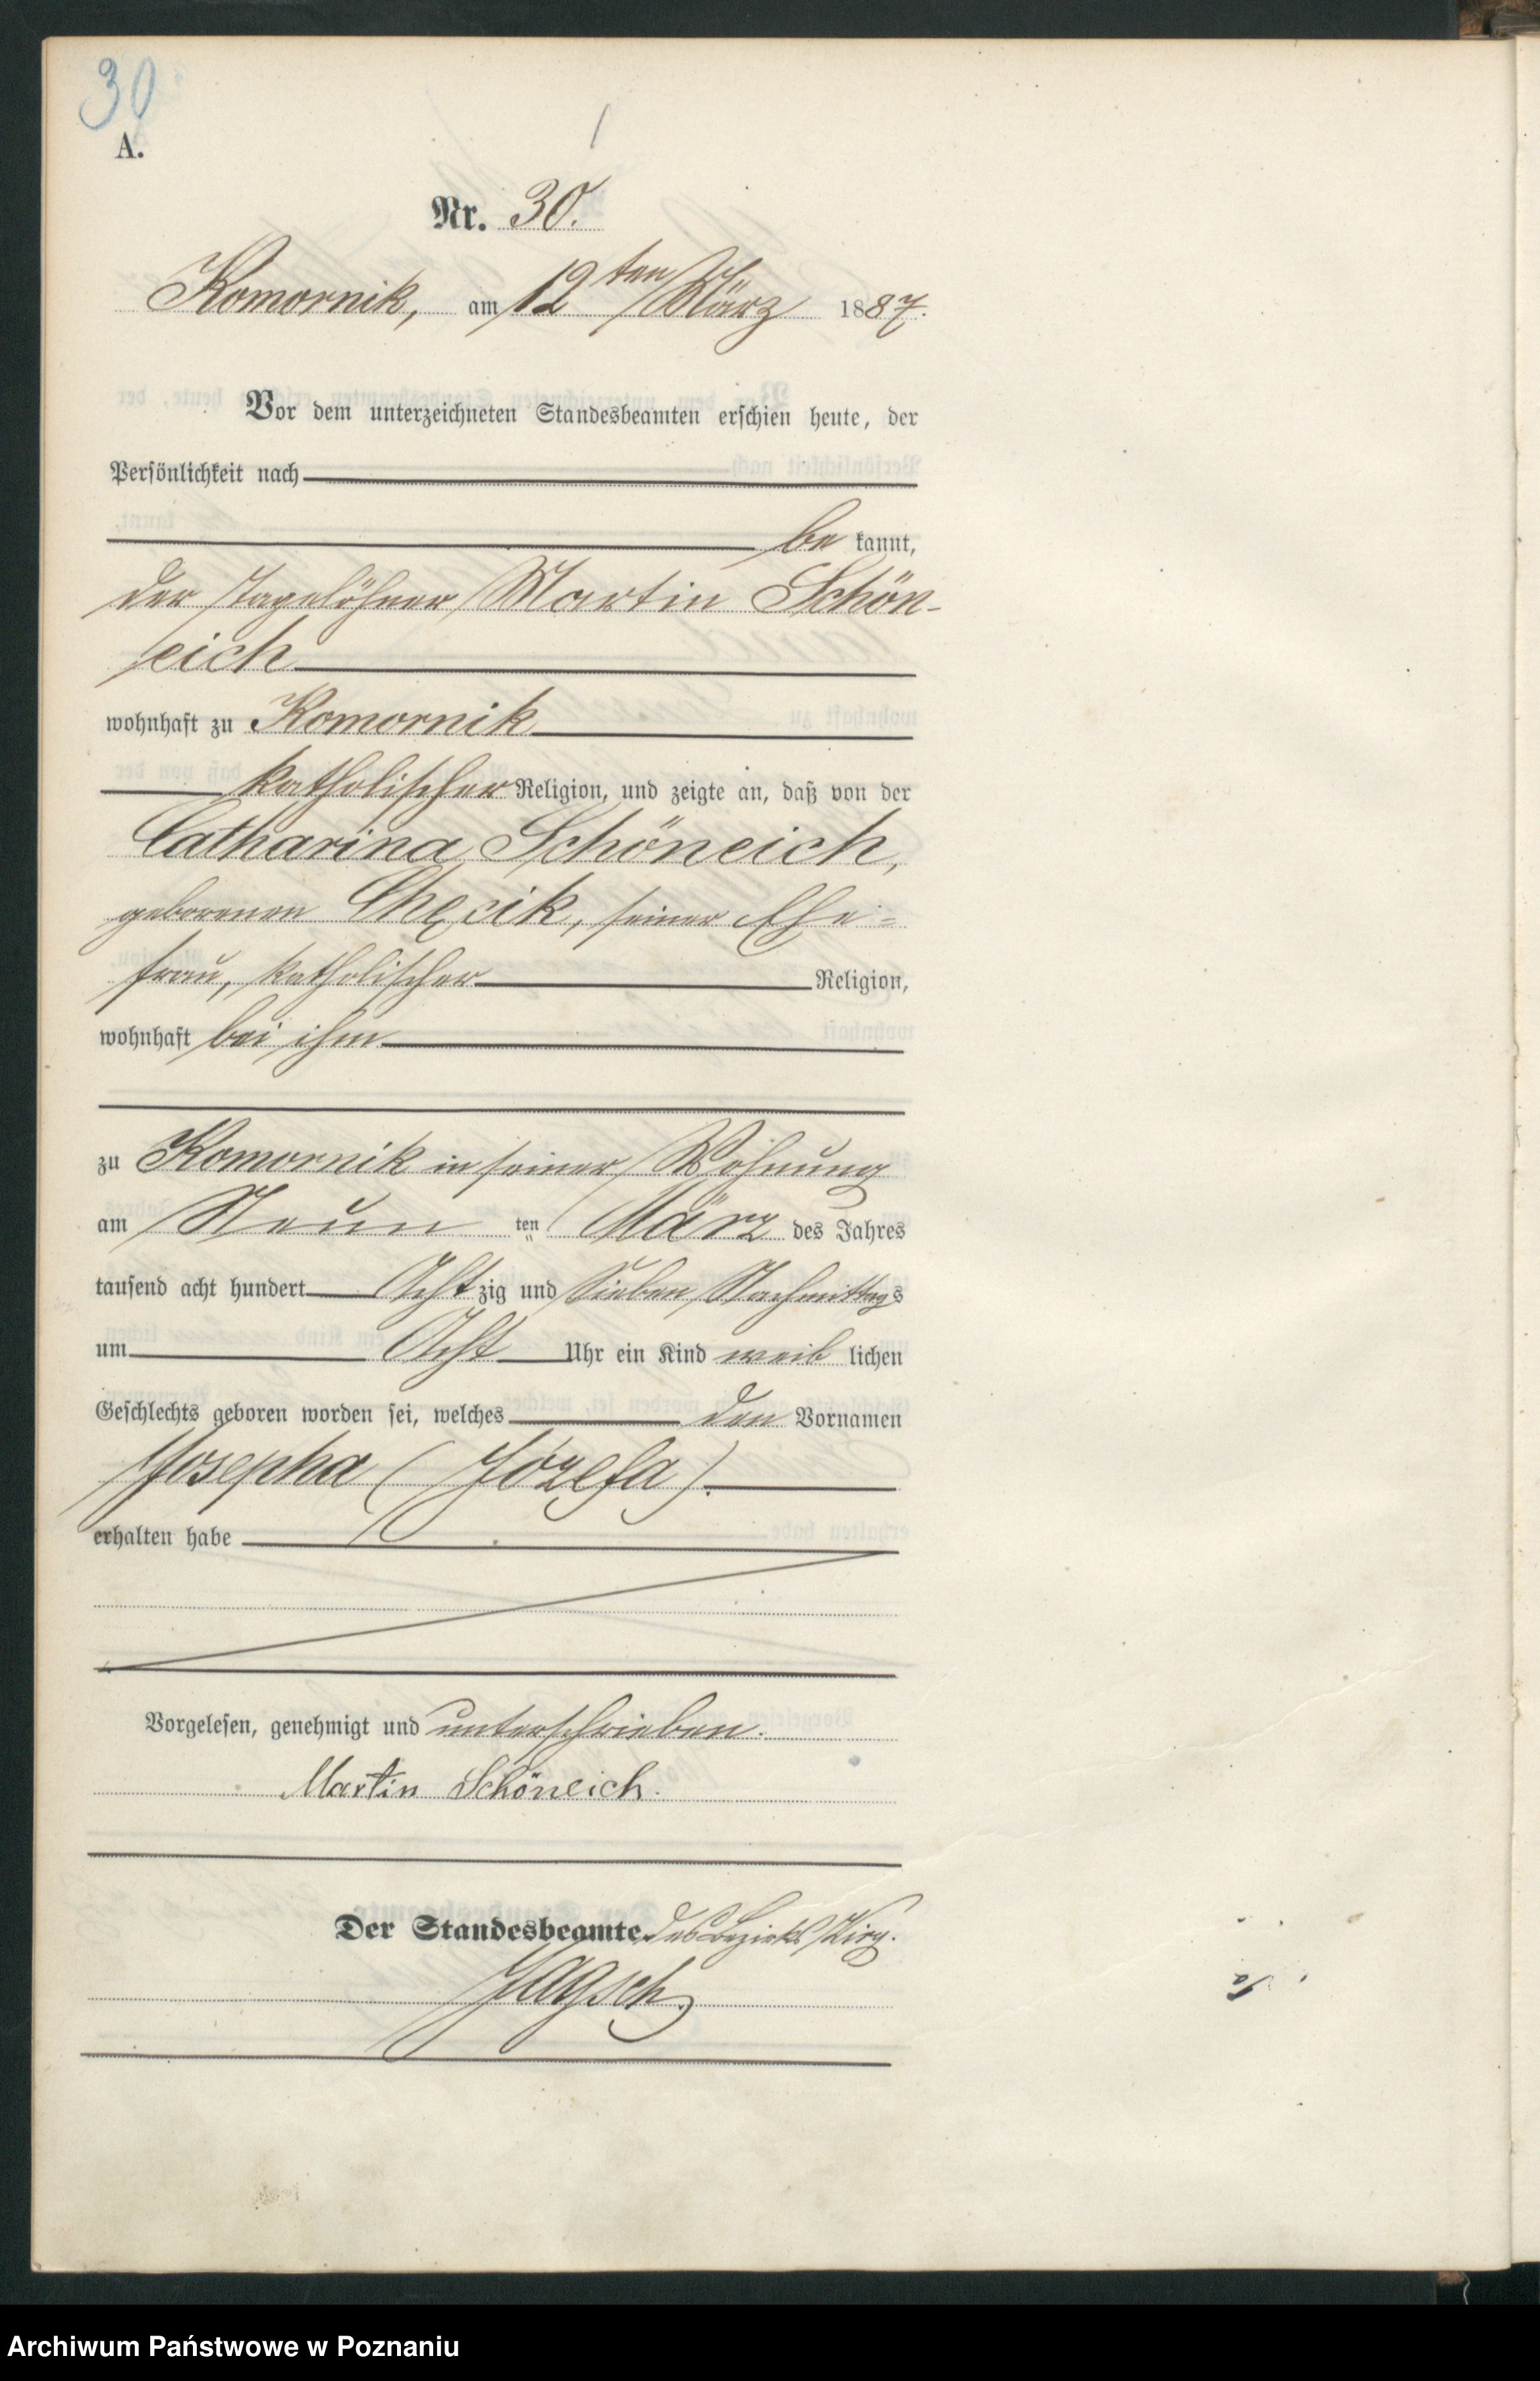 30
A.
Nr. 30.
Komornik, am 12ten März 1887.
Vor dem unterzeichneten Standesbeamten erschien heute, der
Persönlichkeit nach
be kannt,
der Tagelöhner Martin Schön-
eich
wohnhaft zu Komornik
katholischer Religion, und zeigte an, daß von der
Catharina Schöneich,
geborenen Chęcik, seiner Ehe-
frau, katholischer Religion,
wohnhaft bei ihm
zu Komornik in seiner Wohnung
am Neun ten März des Jahres
tausend acht hundert Acht zig und Sieben Nachmittags
um Acht Uhr ein Kind weib lichen
Geschlechts geboren worden sei, welches den Vornamen
Josepha (Józefa).
erhalten habe
Vorgelesen, genehmigt und unterschrieben.
Martin Schöneich.
Der Standesbeamte des Bezirks
Jagsch
Archiwum Państwowe w Poznaniu